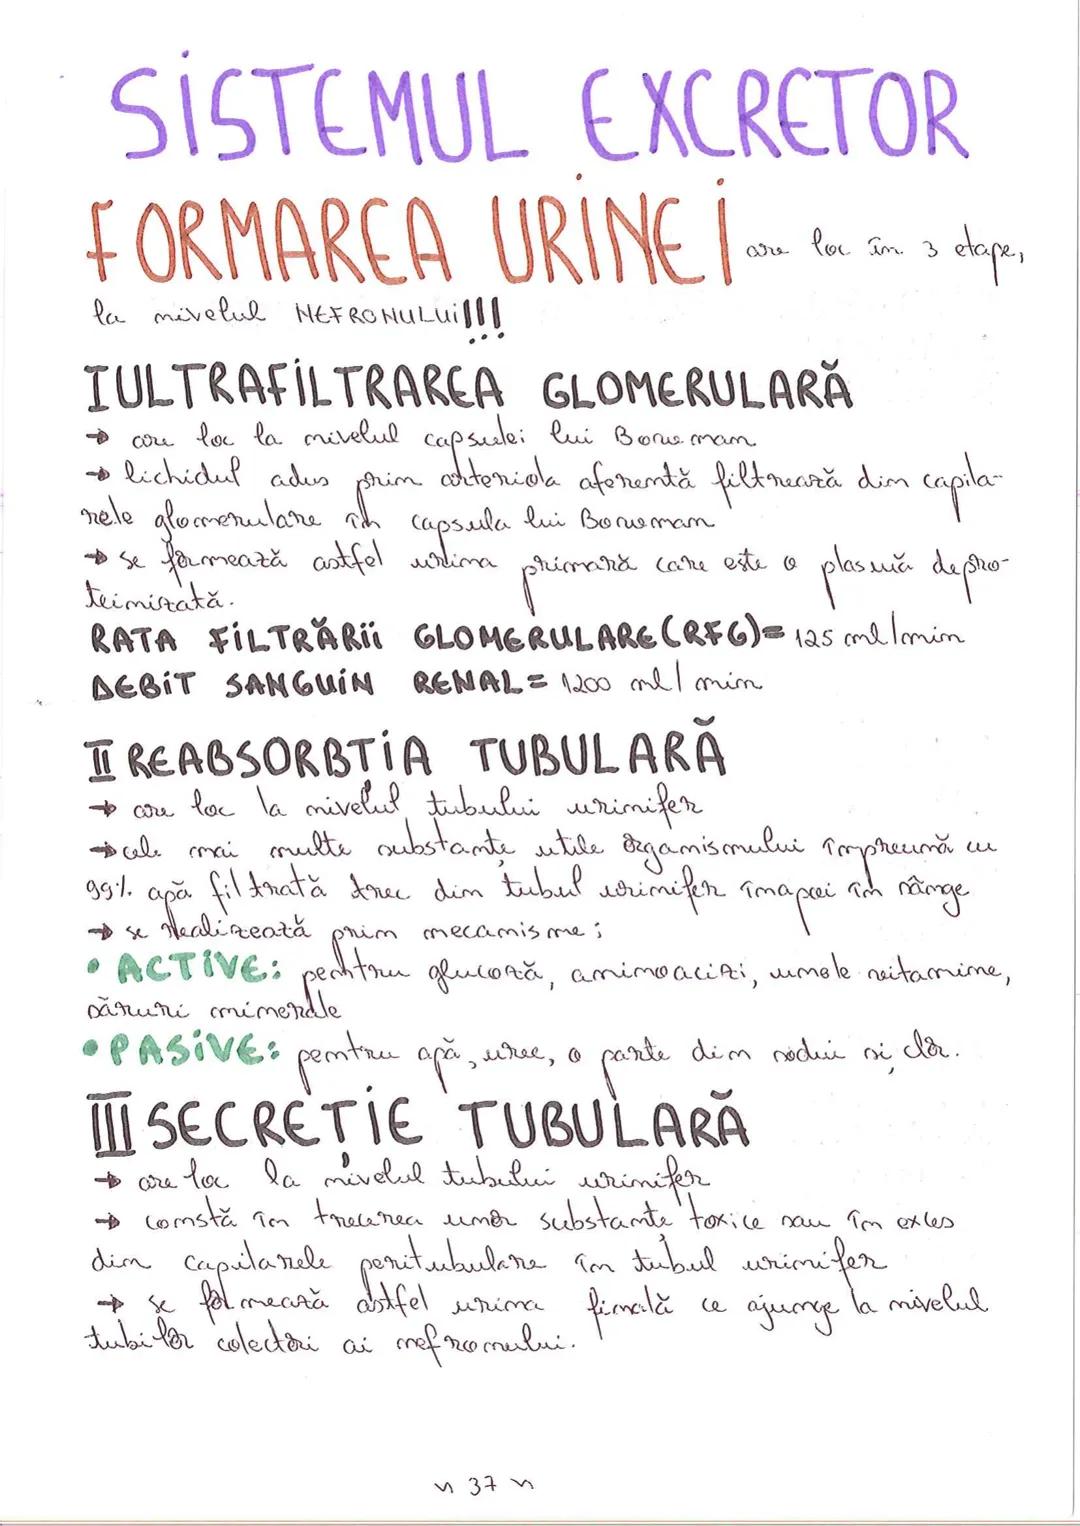 SISTEMUL EXCRETOR
FORMAREA URINEI are loc în 3 etape,
la nivelul NEFRONULUI!!!
I ULTRAFILTRAREA GLOMERULARĂ
→ are loc la nivelul capsulei lui Bowman
→ lichidul adus prin arteriola aferentă filtrează din capila-
rele glomerulare în capsula lui Bowman
→ se formează astfel urina primară care este o plasmă depro-
teinizată.
RATA FILTRĂRII GLOMERULARE (RFG) = 125 ml/min
DEBIT SANGUIN RENAL = 1200 ml/min
II REABSORBȚIA TUBULARĂ
→ are loc la nivelul tubului urinifer
→ cele mai multe substanțe utile organismului împreună cu
99% apă filtrată trec din tubul urinifer înapoi în sânge
→ se realizează prin mecanisme:
• ACTIVE: pentru glucoză, aminoacizi, unele vitamine,
săruri minerale
• PASIVE: pentru apă, uree, o parte din sodiu și clor.
III SECREȚIE TUBULARĂ
→ are loc la nivelul tubului urinifer
→ constă în trecerea unor substanțe toxice sau în exces
din capilarele peritubulare în tubul urinifer
→ se formează astfel urina finală ce ajunge la nivelul
tubilor colectori ai nefronului.
~ 37 ~